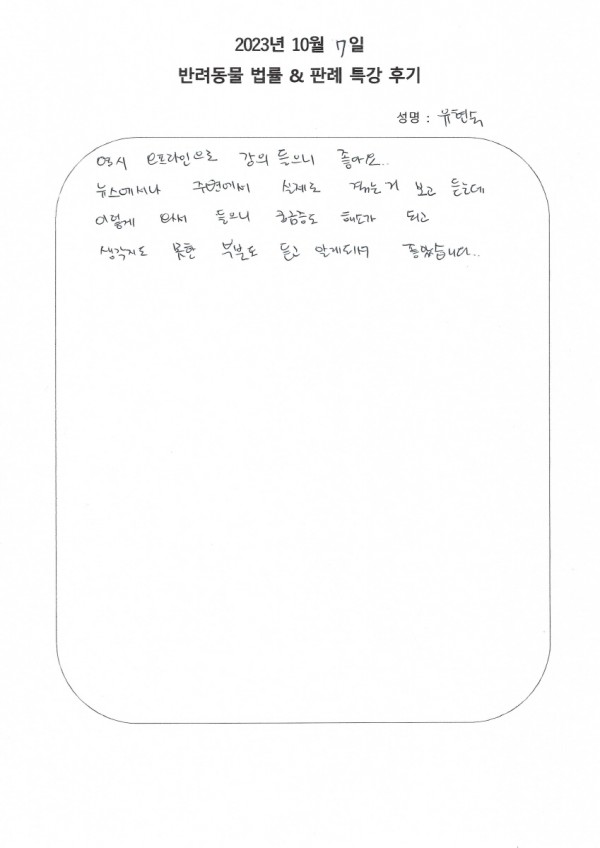 2023년 10월 7일
반려동물 법률 & 판례 특강 후기
성명 : 유현숙
역시 오프라인으로 강의 들으니 좋아요..
뉴스에서나 주변에서 실제로 겪는거 보고 듣는데
이렇게 와서 들으니 궁금증도 해소가 되고
생각지도 못한 부분도 듣고 알게되어 좋았습니다..